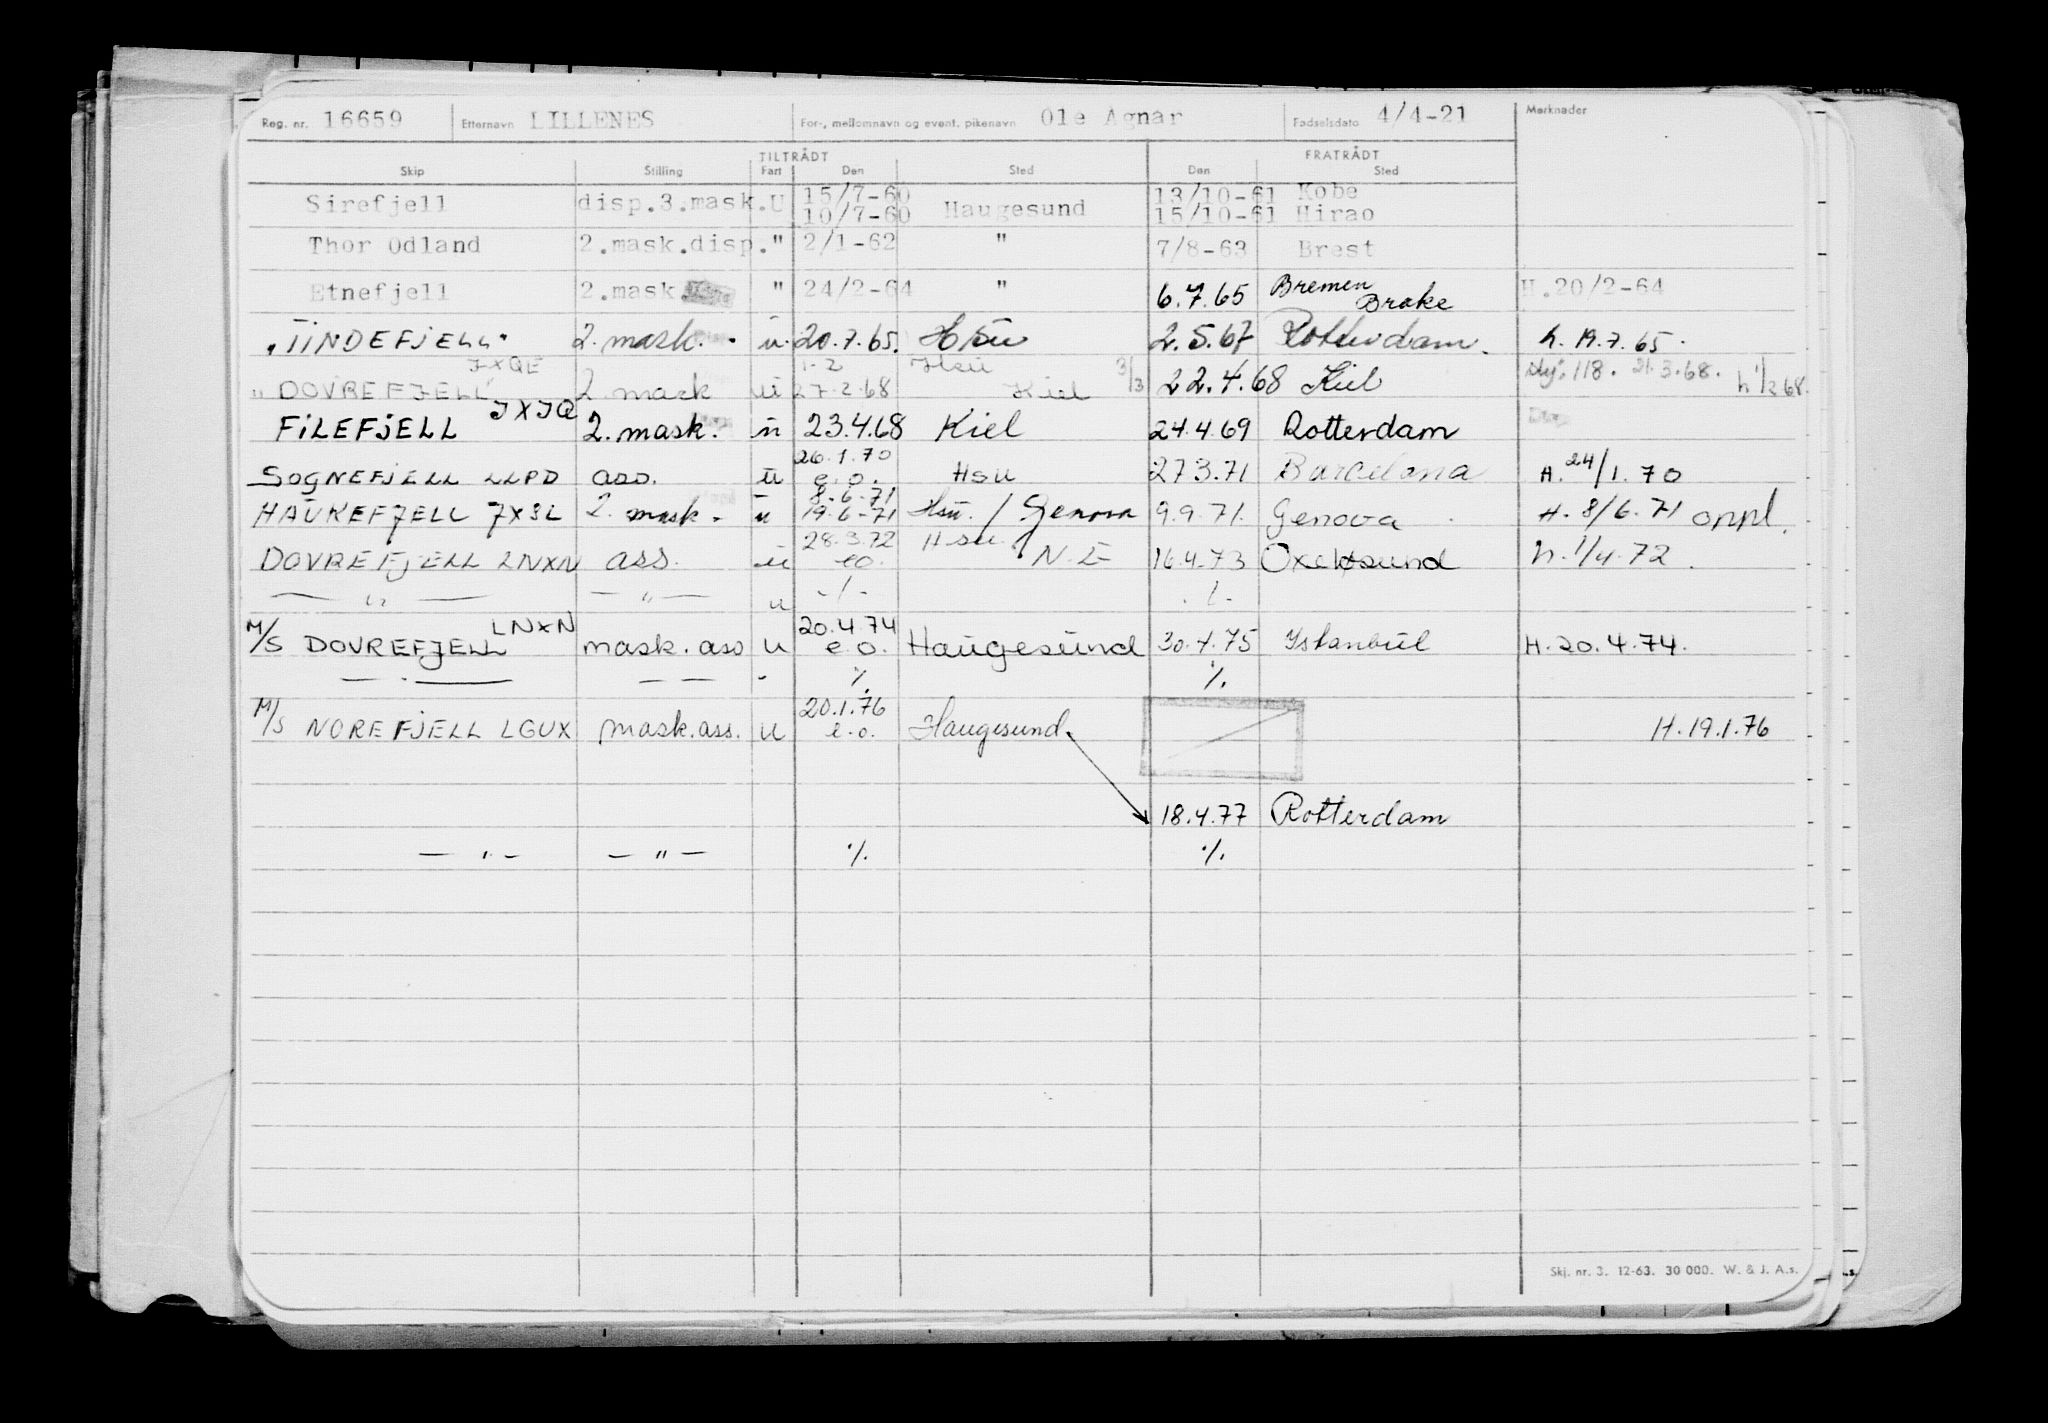 Reg. nr. 16659 Etternavn LILLENES For-, mellomnavn og event. pikenavn Ole Agnar Fødselsdato 4/4-21 Merknader
TILTRÅDT FRATRÅDT
Skip Stilling Fart Den Sted Den Sted
15/7-60 13/10-61 Kobe
Sirefjell disp.3.mask. U 10/7-60 Haugesund 15/10-61 Hirao
Thor Odland 2.mask.disp. " 2/1-62 " 7/8-63 Brest
Etnefjell 2.mask " 24/2-64 " 6.7.65 Bremen Brake H.20/2-64
"TINDEFJELL" 2. mask. u. 20.7.65. Hsu 2.5.67 Rotterdam. h. 19.7.65.
JXQE 1-2 Hsu 3/3
"DOVREFJELL" 2. mask u 27.2.68 Kiel 22.4.68 Kiel 118. 21.3.68. h 1/2 68.
FILEFJELL JXJQ 2. mask. u 23.4.68 Kiel 24.4.69 Rotterdam
26.1.70
SOGNEFJELL LLPD ass. u e.o. Hsu 27.3.71 Barcelona H. 24/1.70
8-6-71
HAUKEFJELL JXSL 2. mask. u 19-6-71 Hsu. / Genova 9.9.71. Genova H. 8/6.71 oppl.
28.3.72 Hsu. /
DOVREFJELL LNXN ass. u eo. N.E 16.4.73 Oxelosund h. 1/4.72.
— " — — " — u -/- ./-
LNXN 20.4.74
M/S DOVREFJELL mask. ass u e.o. Haugesund 30.4.75 Istanbul H. 20.4.74.
— " — — — " ./. ./.
20.1.76
M/S NOREFJELL LGUX mask. ass. u e.o. Haugesund. H. 19.1.76
18.4.77 Rotterdam
— " — — " — ./. ./.
Skj. nr. 3. 12-63. 30 000. W. & J. A.s.